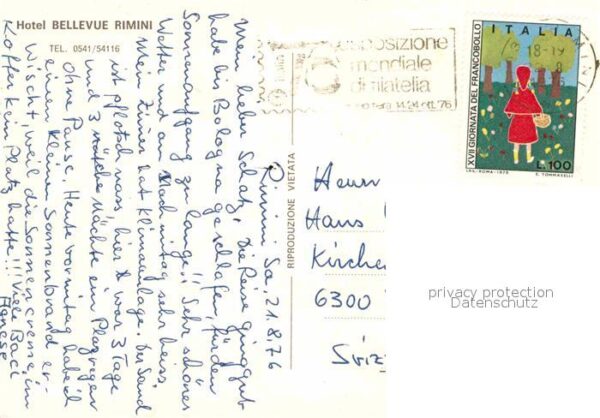 Hotel BELLEVUE RIMINI
TEL. 0541/54116
Rimini Sa, 21.8.76
Mein lieber Schatz, Die Reise ging gut
habe bis Bologna geschlafen, für den
Sonnenaufgang zu lange!! Sehr schönes
Wetter und am Nachmittag sehr heiss.
Mein Zimmer hat Klimaanlage. Der Sand
ist pflotsch nass, hier war 3 Tage
und 3 Nächte ein Platzregen
ohne Pause. Heute vormittag habe ich
einen kleinen Sonnenbrand er-
wischt, weil die Sonnencreme im
Koffer kein Platz hatte!!! Viele Baci
Agnese
RIPRODUZIONE VIETATA
esposizione
mondiale
di filatelia
14-24 ott. 76
ITALIA
XVII GIORNATA DEL FRANCOBOLLO
L. 100
I.P.S.-ROMA-1975
E. TOMMASELLI
Herrn
Hans
Kirche
6300
Sviz
privacy protection
Datenschutz